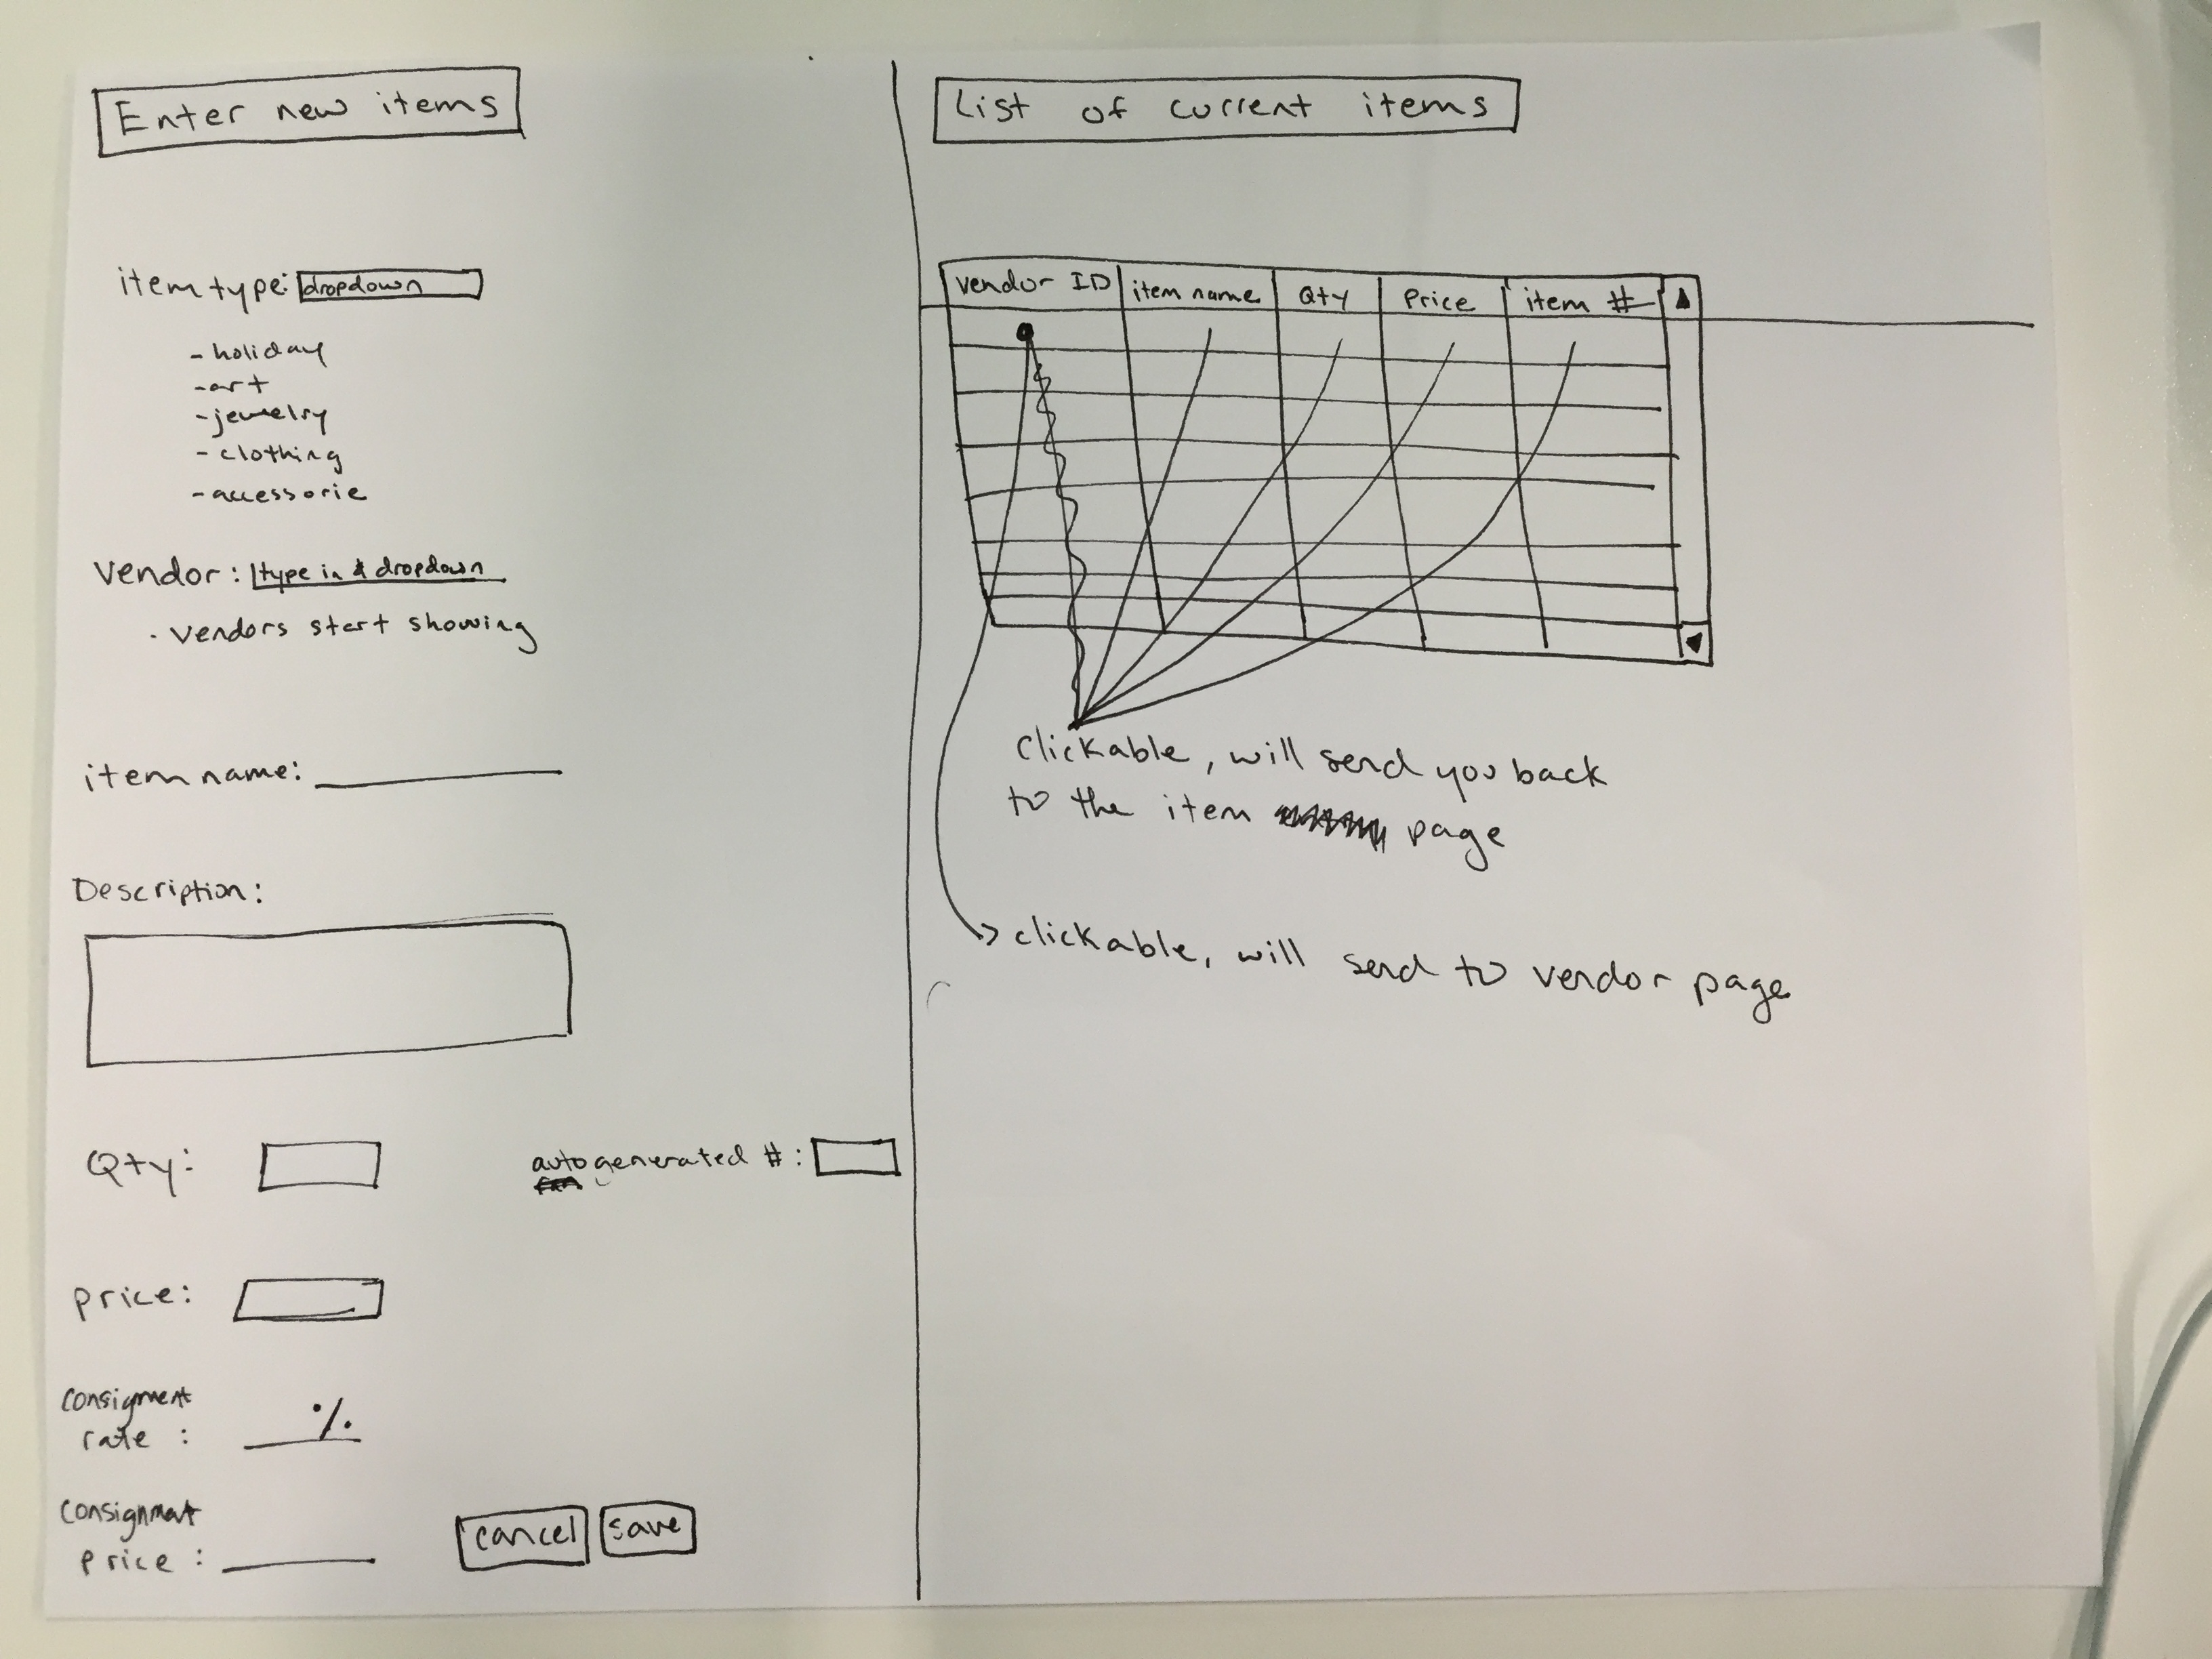 Enter new items
item type: dropdown
-holiday
-art
-jewelry
-clothing
-accessorie
Vendor: type in & dropdown
. vendors start showing
item name:
Description:
Qty:
auto generated #:
price:
consignment
rate: %
consignment
price:
cancel save
List of current items
vendor ID item name Qty Price item #
clickable, will send you back
to the item page
clickable, will send to vendor page